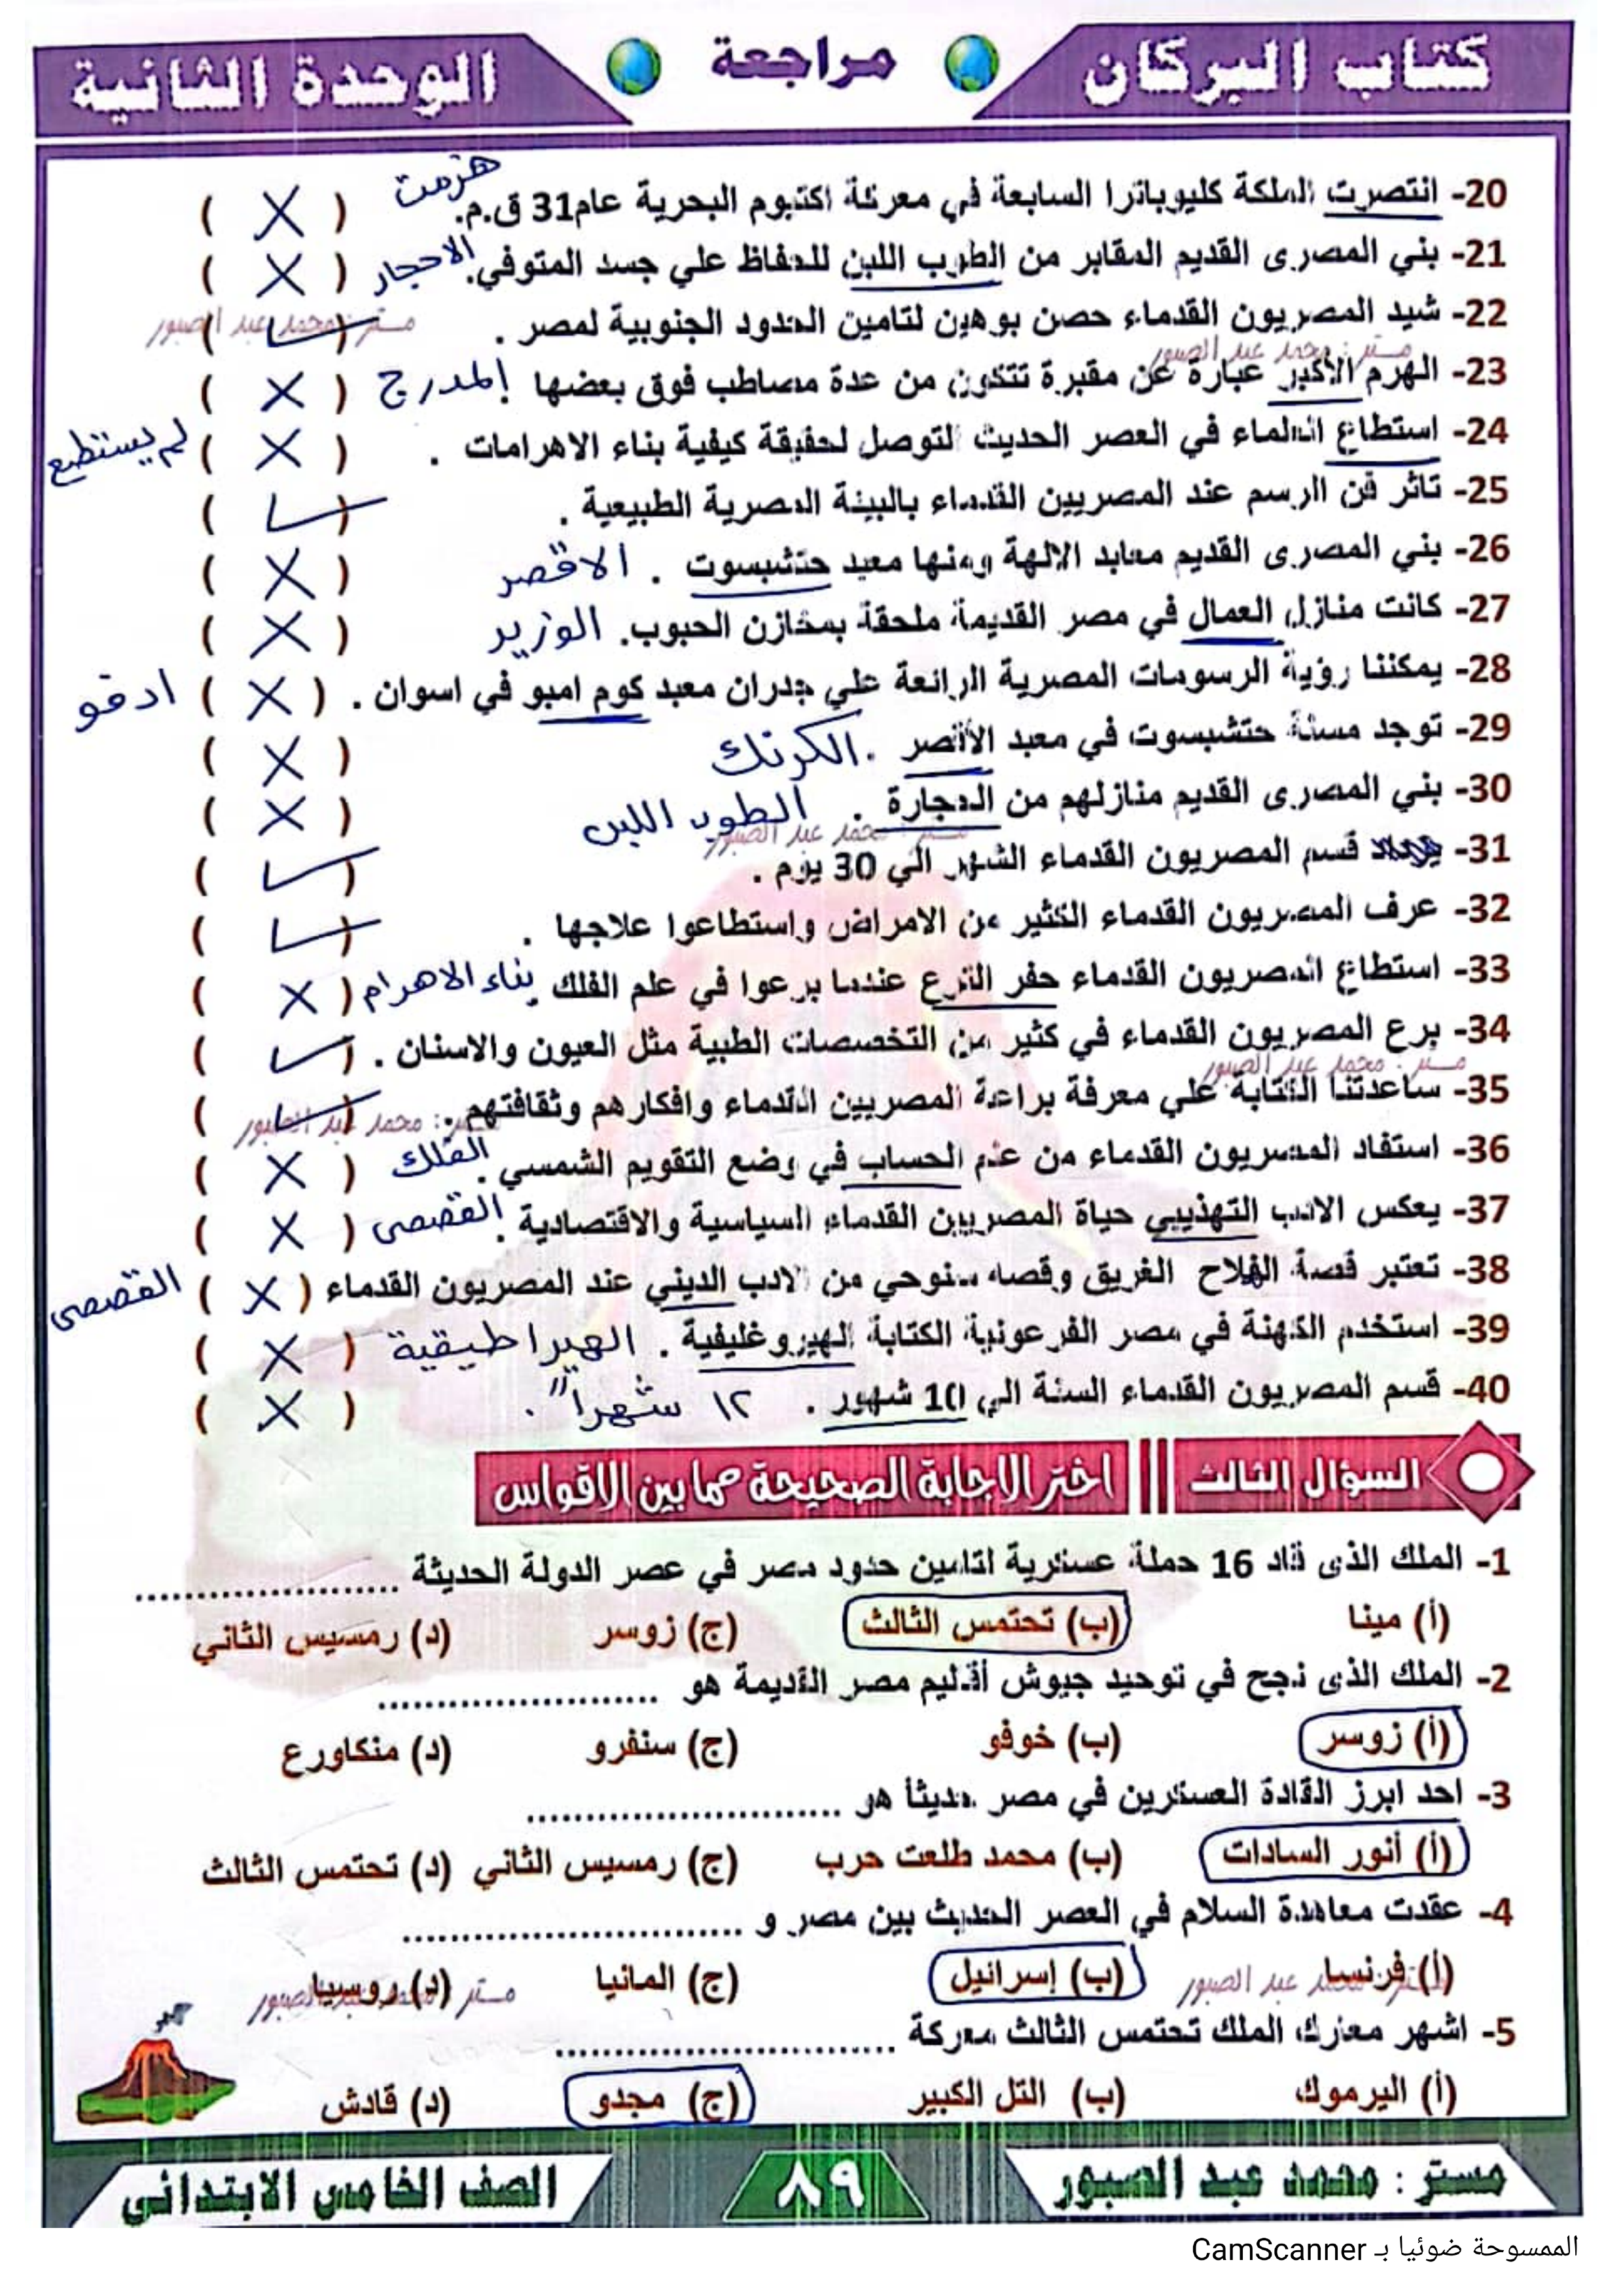 كتاب البركان
مراجعة
الوحدة الثانية
20- انتصرت الملكة كليوباترا السابعة في معركة اكتيوم البحرية عام31 ق.م. هزمت ( X )
21- بني المصرى القديم المقابر من الطوب اللبن للحفاظ علي جسد المتوفي. الاحجار ( X )
22- شيد المصريون القدماء حصن بوهين لتامين الحدود الجنوبية لمصر . ( ✓ )
مستر : محمد عبد الصبور
مستر : محمد عبد الصبور
23- الهرم الاكبر عبارة عن مقبرة تتكون من عدة مصاطب فوق بعضها . المدرج ( X )
24- استطاع العلماء في العصر الحديث التوصل لحقيقة كيفية بناء الاهرامات . ( X ) لم يستطيع
25- تاثر فن الرسم عند المصريين القدماء بالبيئة المصرية الطبيعية . ( ✓ )
26- بني المصرى القديم معابد الالهة ومنها معبد حتشبسوت . الاقصر ( X )
27- كانت منازل العمال في مصر القديمة ملحقة بمخازن الحبوب. الوزير ( X )
28- يمكننا رؤية الرسومات المصرية الرائعة علي جدران معبد كوم امبو في اسوان . ( X ) ادفو
29- توجد مسلة حتشبسوت في معبد الأقصر . الكرنك ( X )
30- بني المصرى القديم منازلهم من الحجارة . الطوب اللبن ( X )
مستر : محمد عبد الصبور
31- قسم المصريون القدماء الشهر الي 30 يوم . ( ✓ )
32- عرف المصريون القدماء الكثير من الامراض واستطاعوا علاجها . ( ✓ )
33- استطاع المصريون القدماء حفر الترع عندما برعوا في علم الفلك . بناء الاهرام ( X )
34- برع المصريون القدماء في كثير من التخصصات الطبية مثل العيون والاسنان . ( ✓ )
مستر : محمد عبد الصبور
35- ساعدتنا الكتابة علي معرفة براعة المصريين القدماء وافكارهم وثقافتهم . ( ✓ )
مستر : محمد عبد الصبور
36- استفاد المصريون القدماء من علم الحساب في وضع التقويم الشمسي . الفلك ( X )
37- يعكس الادب التهذيبي حياة المصريين القدماء السياسية والاقتصادية . القصصى ( X )
38- تعتبر قصة الفلاح الغريق وقصة سنوحي من الادب الديني عند المصريون القدماء ( X ) القصصى
39- استخدم الكهنة في مصر الفرعونية الكتابة الهيروغليفية . الهيراطيقية ( X )
40- قسم المصريون القدماء السنة الي 10 شهور . ١٢ شهراً . ( X )
السؤال الثالث || اختر الاجابة الصحيحة مما بين الاقواس
1- الملك الذى قاد 16 حملة عسكرية لتامين حدود مصر في عصر الدولة الحديثة ..........................
(أ) مينا (ب) تحتمس الثالث (ج) زوسر (د) رمسيس الثاني
2- الملك الذى نجح في توحيد جيوش أقاليم مصر القديمة هو ..........................
(أ) زوسر (ب) خوفو (ج) سنفرو (د) منكاورع
3- احد ابرز القادة العسكرين في مصر حديثا هو ..........................
(أ) أنور السادات (ب) محمد طلعت حرب (ج) رمسيس الثاني (د) تحتمس الثالث
4- عقدت معاهدة السلام في العصر الحديث بين مصر و ..........................
(أ) فرنسا (ب) إسرائيل (ج) المانيا (د) روسيا
مستر : محمد عبد الصبور
مستر : محمد عبد الصبور
5- اشهر معارك الملك تحتمس الثالث معركة ..........................
(أ) اليرموك (ب) التل الكبير (ج) مجدو (د) قادش
مستر : محمد عبد الصبور
٨٩
الصف الخامس الابتدائي
الممسوحة ضوئيا بـ CamScanner